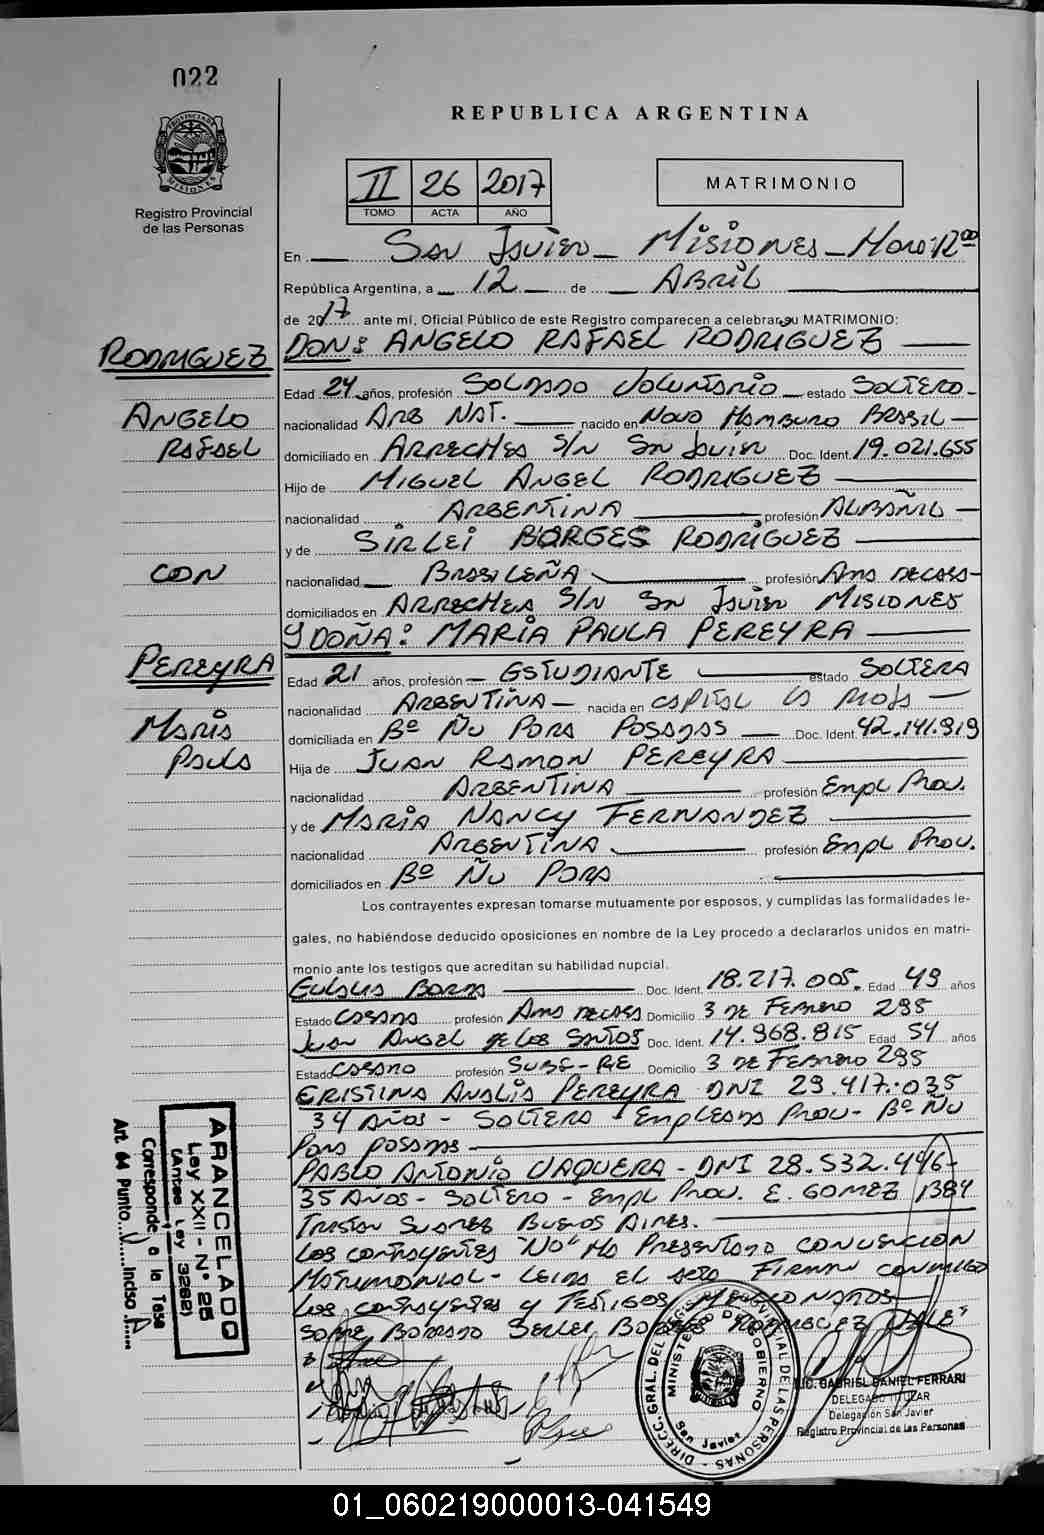 022
REPUBLICA ARGENTINA
PROVINCIA DE MISIONES
Registro Provincial
de las Personas
II 26 2017
TOMO ACTA AÑO
MATRIMONIO
En San Javier - Misiones - Hora: 12 00
República Argentina, a 12 de Abril
de 2017 ante mí, Oficial Público de este Registro comparecen a celebrar su MATRIMONIO:
RODRIGUEZ
DON: ANGELO RAFAEL RODRIGUEZ
Edad 24 años, profesión Soldado Voluntario estado Soltero
ANGELO
nacionalidad Arg Nat. nacido en Novo Hamburgo Brasil
RAFAEL
domiciliado en Arrechea S/N San Javier Doc. Ident. 19.021.655
Hijo de Miguel Angel Rodriguez
nacionalidad Argentina profesión Albañil
y de Sirlei Borges Rodriguez
CON
nacionalidad Brasileña profesión Ama de casa
domiciliados en Arrechea S/N San Javier Misiones
Y DOÑA: MARIA PAULA PEREYRA
PEREYRA
Edad 21 años, profesión Estudiante estado Soltera
nacionalidad Argentina nacida en Capital La Rioja
Maria
domiciliada en Bº Ñu Pora Posadas Doc. Ident. 42.141.919
Paula
Hija de Juan Ramon Pereyra
nacionalidad Argentina profesión Empl Prov.
y de Maria Nancy Fernandez
nacionalidad Argentina profesión Empl Prov.
domiciliados en Bº Ñu Pora
Los contrayentes expresan tomarse mutuamente por esposos, y cumplidas las formalidades le-
gales, no habiéndose deducido oposiciones en nombre de la Ley procedo a declararlos unidos en matri-
monio ante los testigos que acreditan su habilidad nupcial.
Doc. Ident. 18.217.005. Edad 49 años
Estado Casada profesión Ama de casa Domicilio 3 de Febrero 295
Juan Angel de los Santos Doc. Ident. 14.968.815 Edad 54 años
Estado Casado profesión Domicilio 3 de Febrero 295
Cristina Analia Pereyra DNI 29.417.035
34 Años - Soltera Empleada Prov - Bº Ñu
Pora Posadas
Pablo Antonio Vaquera - DNI 28.532.446
35 Años - Soltero - Empl Prov. E. Gomez 1384
Tristan Suarez Buenos Aires.
Los contrayentes "NO" Ha Presentado Convencion
Matrimonial - Leida el acta Firman conmigo
Los contrayentes y Testigos Mencionados
Sobre Borrado Borges Rodriguez Vale
ARANCELADO
Ley XXII - Nº 25
(Antes Ley 3262)
Corresponde a la Tasa
Art. 64 Punto Inciso
DIRECC. GRAL. DEL REG. PROVINCIAL DE LAS PERSONAS
MINISTERIO DE GOBIERNO
San Javier
LIC. GABRIEL DANIEL FERRARI
DELEGADO TITULAR
Delegación San Javier
Registro Provincial de las Personas
01_060219000013-041549